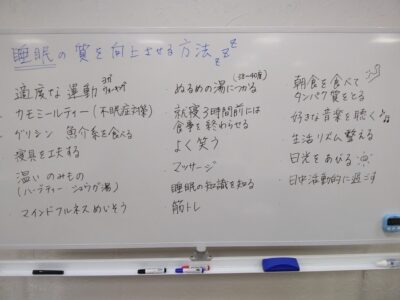 睡眠の質を向上させる方法 zzz
適度な運動 ヨガ ウォーキング
・カモミールティー(不眠症対策)
・グリシン 魚介系を食べる
・寝具を工夫する
・温いのみもの
(ハーブティー ショウガ湯)
・マインドフルネスめいそう
・ぬるめの湯につかる(38~40度)
・就寝3時間前には
食事を終わらせる
・よく笑う
・マッサージ
・睡眠の知識を知る
・筋トレ
・朝食を食べて
タンパク質をとる
・好きな音楽を聴く♪
・生活リズム整える
・日光をあびる
・日中活動的に過ごす